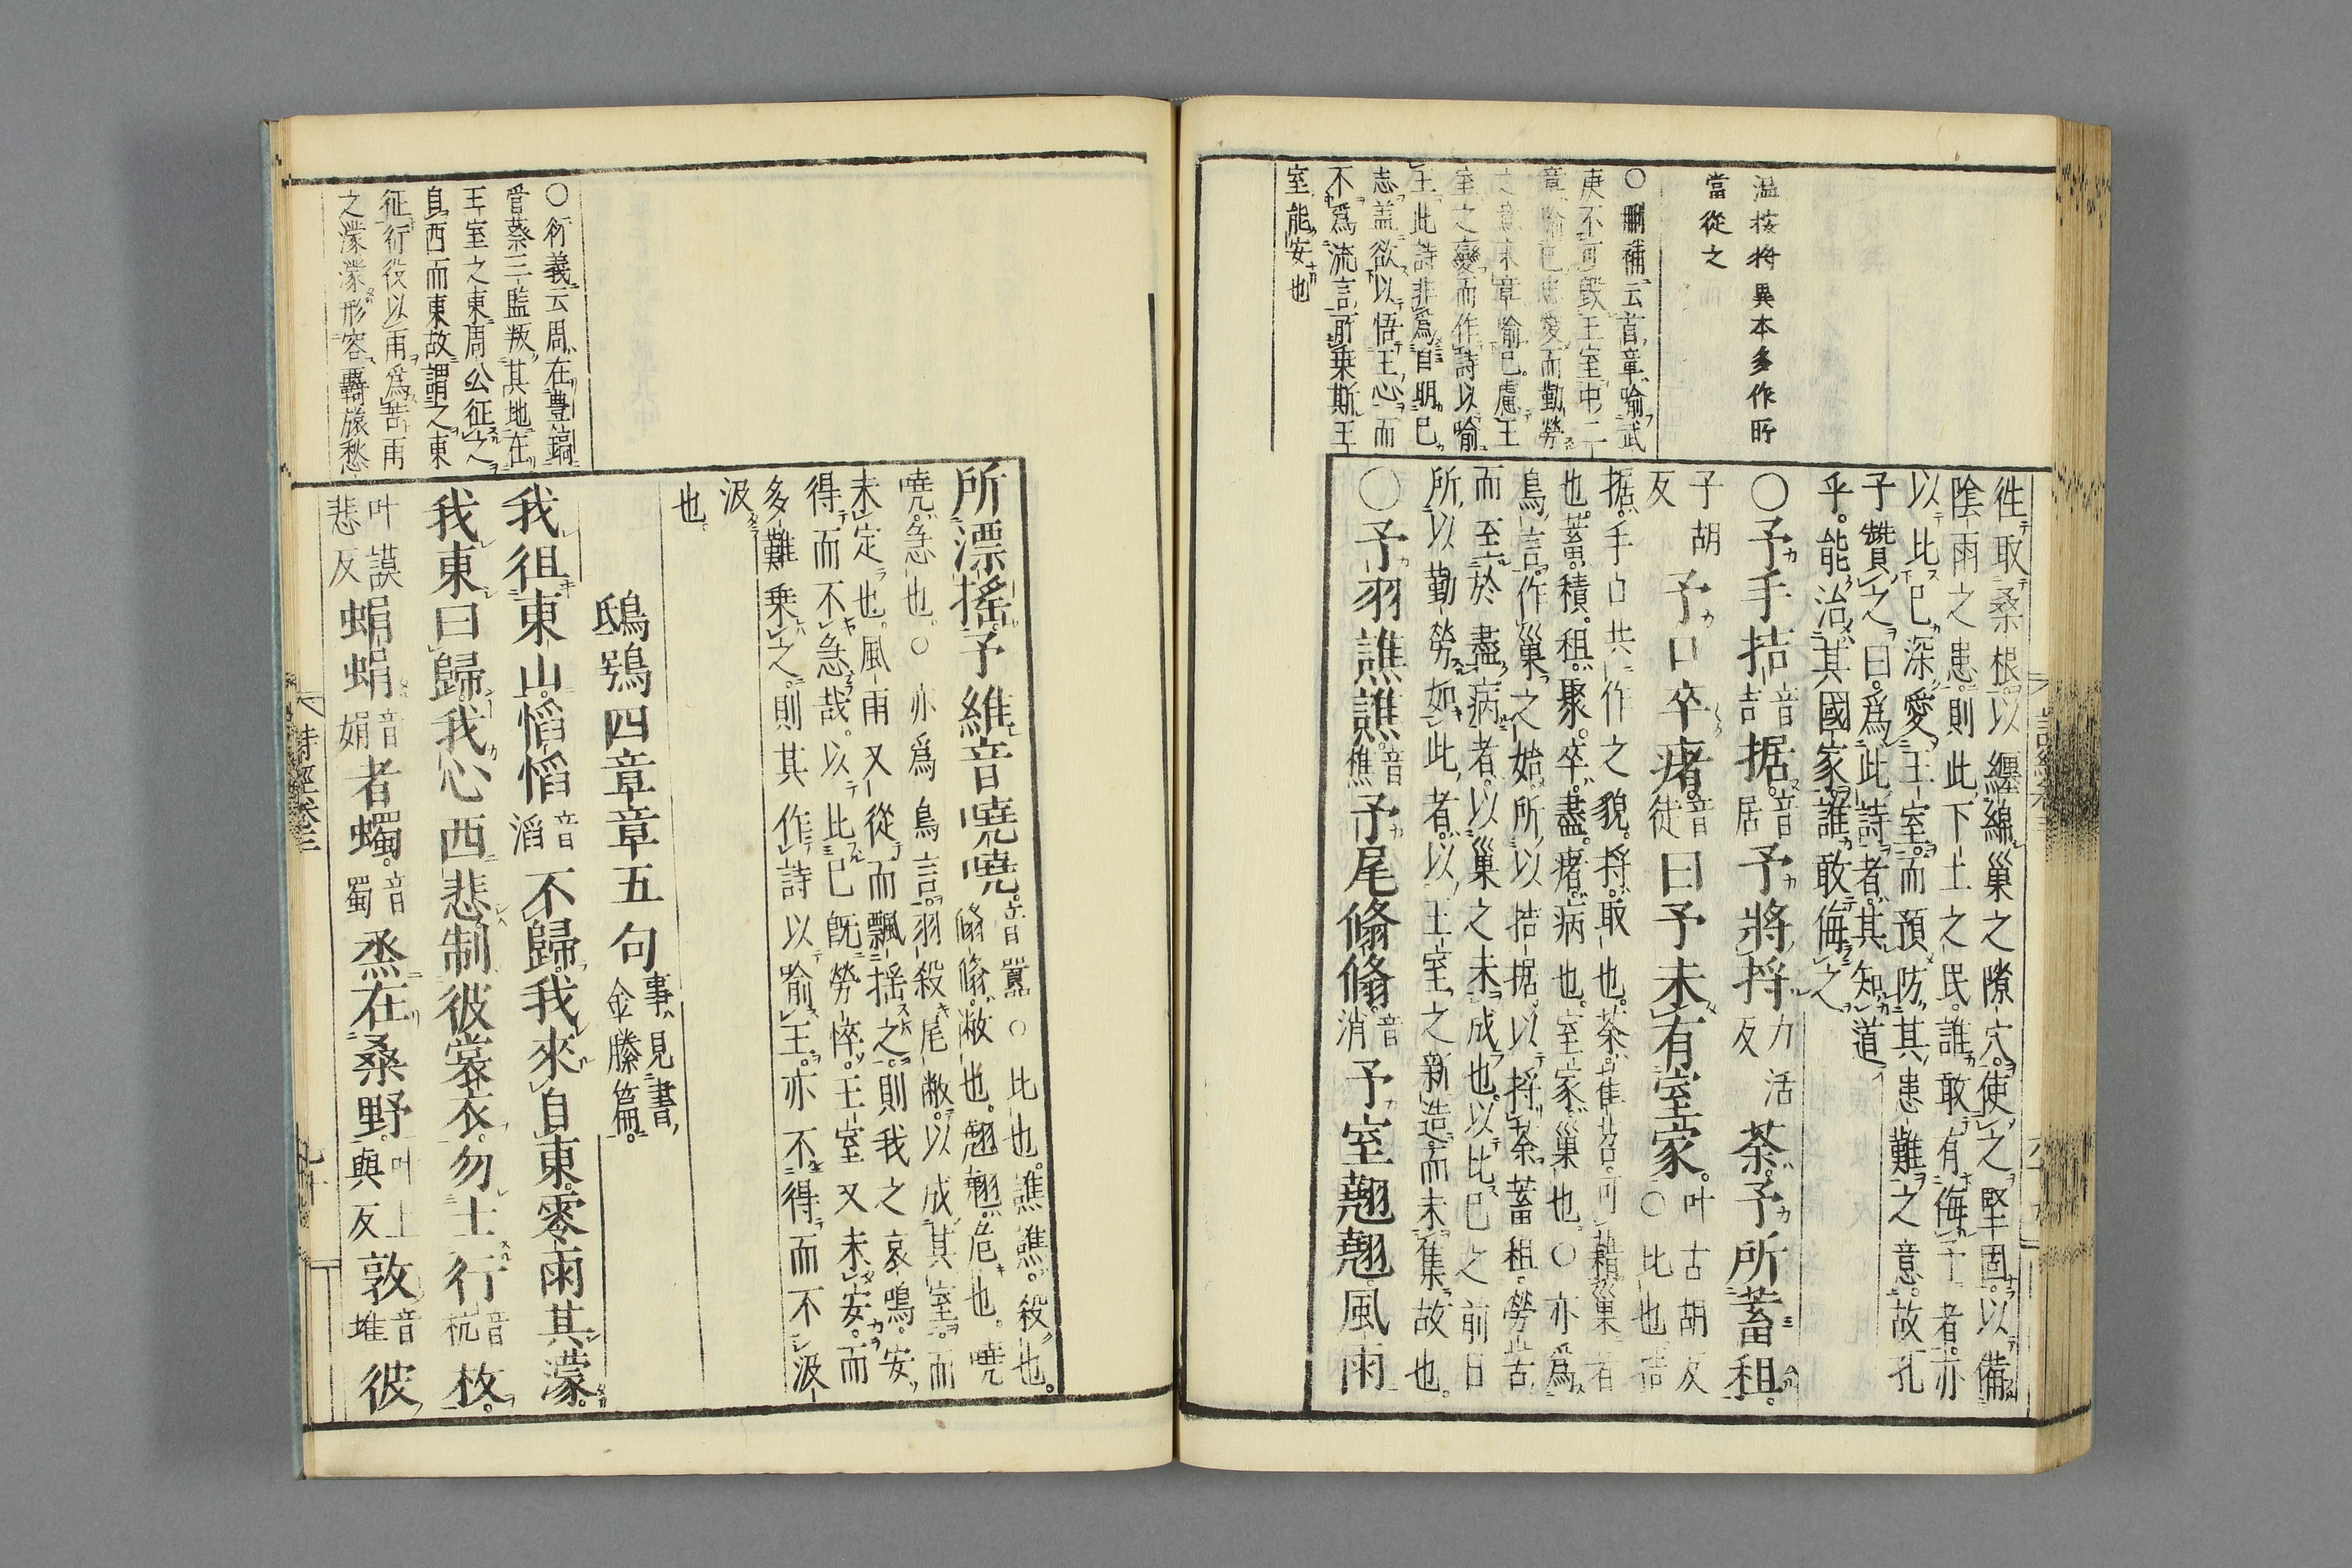 温按捋異本多作所
當從之
○刪補云首章喻武
庚不可毀王室中二
章喻己
深愛而勤勞
之意末章喻己慮王
室之變而作詩以喻
王此詩非為自明己
志盖欲以悟王心而
不爲流言所乗斯王
室能安也
徃取桑根以纏綿巢之隙穴使之堅固以備
陰雨之患則此下土之民誰敢有侮予者亦
以比己深愛王室而預防其患難之意故孔
子贊之曰爲此詩者其知道
乎能治其國家誰敢侮之
○予手拮音吉据音居予將捋力活反荼予所蓄租
子胡反予口卒瘏音徒曰予未有室家叶古胡反○比也拮
据手口共作之貌捋取也荼萑苕可藉巢者
也蓄積租聚卒盡瘏病也室家巢也○亦爲
鳥言作巢之始所以拮据以捋荼蓄租勞苦
而至於盡病者以巢之未成也以比己之前日
所以勤勞如此者以王室之新造而未集故也
○予羽譙譙音樵予尾翛翛音消予室翹翹風雨
所漂搖予維音嘵嘵音囂○比也譙譙殺也
翛翛敝也翹翹危也嘵
嘵急也○亦爲鳥言羽殺尾敝以成其室而
未定也風雨又從而飄揺之則我之哀鳴安
得而不急哉以比己既勞悴王室又未安而
多難乗之則其作詩以喻王亦不得而不汲
汲
也
鴟鴞四章章五句事見書金縢篇
○衍義云周在豊鎬
管蔡三監叛其地在
王室之東周公征之
自西而東故謂之東
征行役以雨爲苦雨
之濛濛形容羇旅愁
我徂東山慆慆音滔不歸我來自東零雨其濛
我東曰歸我心西悲制彼裳衣勿士行音杭枚
叶謨悲反蜎蜎音娟者蠋音蜀烝在桑野叶上與反敦音堆彼
詩經卷三